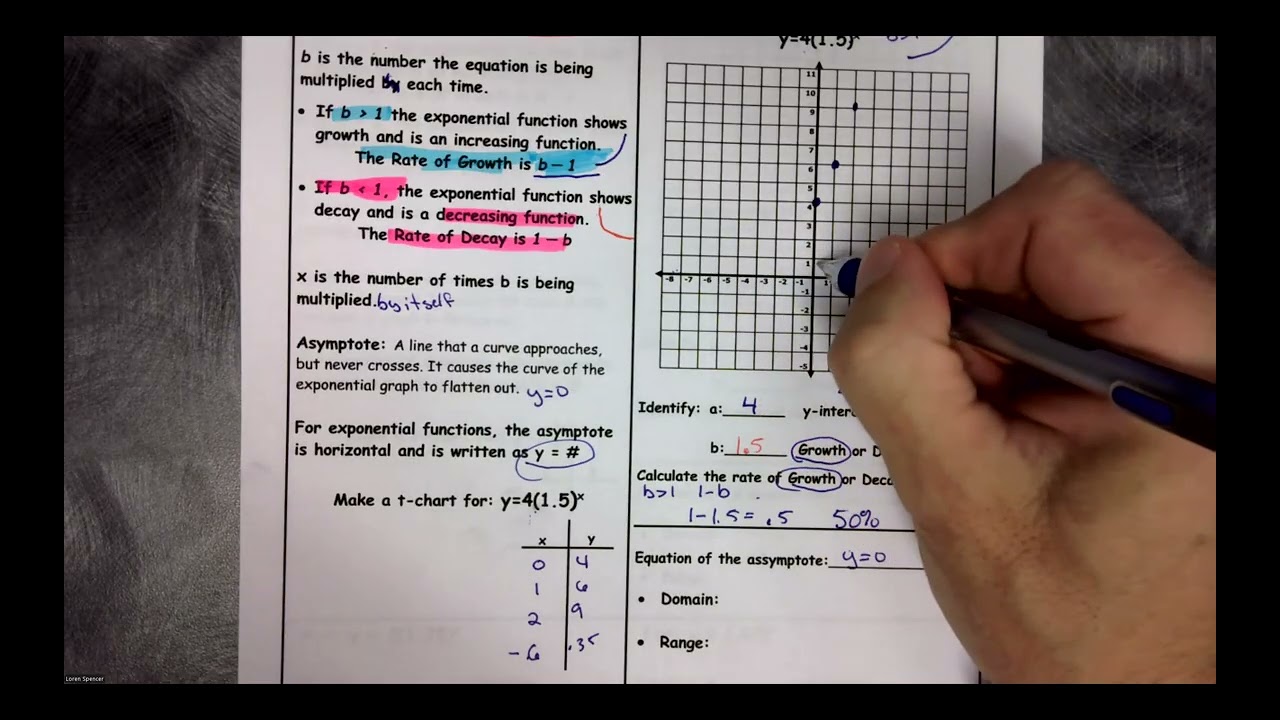 b is the number the equation is being
multiplied by each time.
• If b > 1 the exponential function shows
growth and is an increasing function.
The Rate of Growth is b – 1
• If b < 1, the exponential function shows
decay and is a decreasing function.
The Rate of Decay is 1 – b
x is the number of times b is being
multiplied. by itself
Asymptote: A line that a curve approaches,
but never crosses. It causes the curve of the
exponential graph to flatten out. y=0
For exponential functions, the asymptote
is horizontal and is written as y = #
Make a t-chart for: y=4(1.5)ˣ
x y
0 4
1 6
2 9
-6 .35
y=4(1.5)ˣ
11
10
9
8
7
6
5
4
3
2
1
-8 -7 -6 -5 -4 -3 -2 -1 1
-1
-2
-3
-4
-5
Identify: a: 4 y-inter
b: 1.5 Growth or D
Calculate the rate of Growth or Deca
b>1 1-b
1-1.5= .5 50%
Equation of the assymptote: y=0
• Domain:
• Range:
Loren Spencer